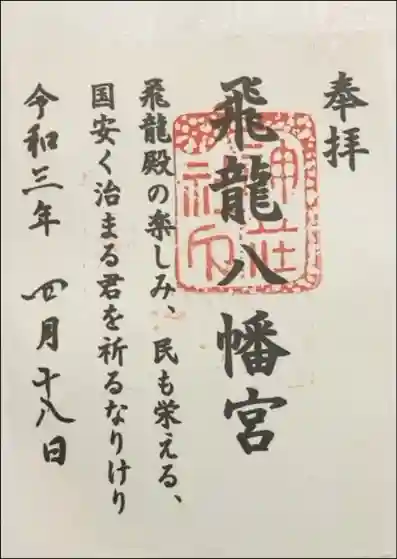 奉拝
飛龍八幡宮
神社
社印
飛龍殿の楽しみ、民も栄える、
国安く治まる君を祈るなりけり
令和三年 四月十八日